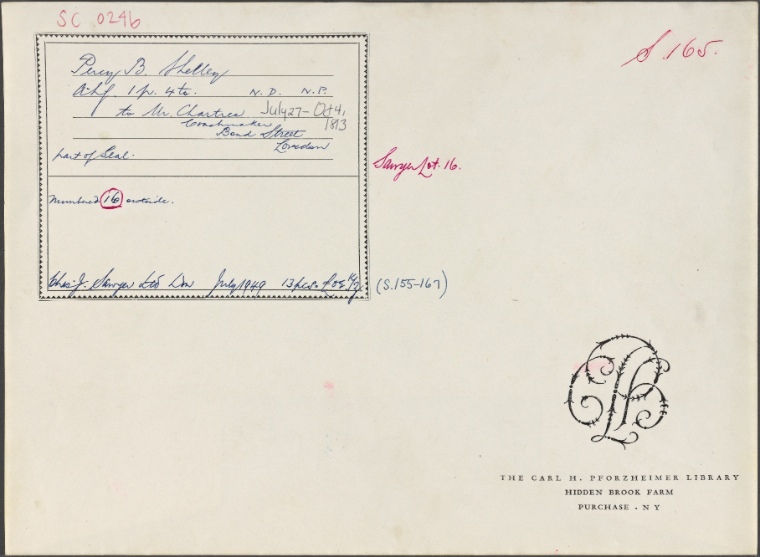 SC 0246
S. 165.
Percy B. Shelley
A.L.f. 1 p. 4to. N.D. N.P.
to Mr. Chartres July 27-Oct 4, 1813
Coachmaker
Bond Street
London
part of Seal.
Sawyer Lot. 16.
Numbered 16 outside.
Chas. J. Sawyer Ltd July 1949 13 pcs.
(S.155-167)
THE CARL H. PFORZHEIMER LIBRARY
HIDDEN BROOK FARM
PURCHASE · NY